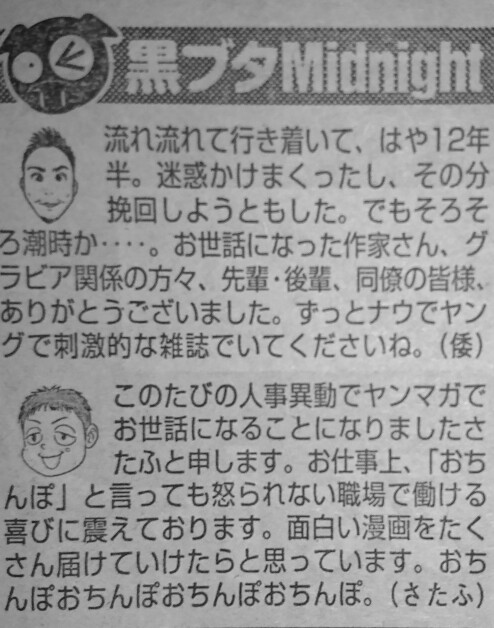 黒ブタMidnight
流れ流れて行き着いて、はや12年
半。迷惑かけまくったし、その分
挽回しようともした。でもそろそ
ろ潮時か‥‥。お世話になった作家さん、グ
ラビア関係の方々、先輩・後輩、同僚の皆様、
ありがとうございました。ずっとナウでヤン
グで刺激的な雑誌でいてくださいね。（倭）
このたびの人事異動でヤンマガで
お世話になることになりましたさ
たふと申します。お仕事上、「おち
んぽ」と言っても怒られない職場で働ける
喜びに震えております。面白い漫画をたく
さん届けていけたらと思っています。おち
んぽおちんぽおちんぽおちんぽ。（さたふ）